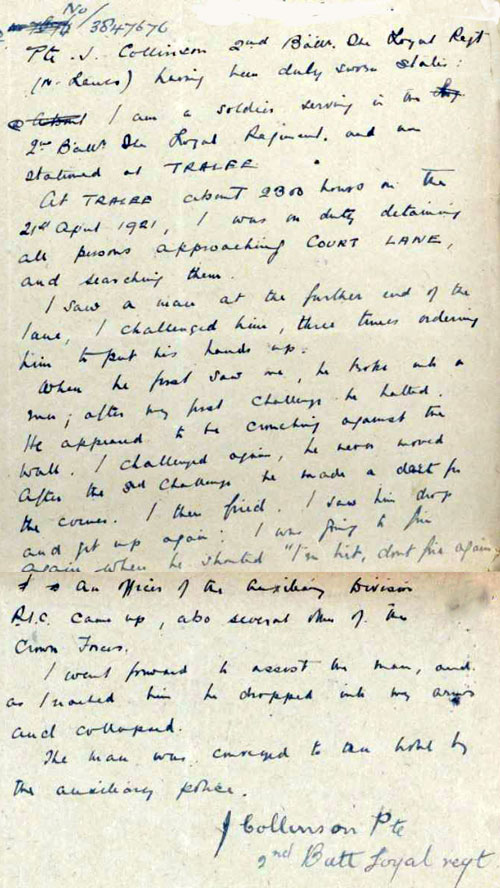 No / 3847676
Pte. J. Collinson 2nd Battn. The Loyal Regt
(N. Lancs) having been duly sworn states:
I am a soldier serving in the
2nd Battn The Loyal Regiment, and am
stationed at TRALEE.
At TRALEE about 2300 hours on the
21st April 1921, I was on duty detaining
all persons approaching COURT LANE,
and searching them.
I saw a man at the further end of the
lane, I challenged him, three times ordering
him to put his hands up.
When he first saw me, he broke into a
run; after my first challenge he halted.
He appeared to be crouching against the
wall. I challenged again, he never moved
After the 3rd challenge he made a dart for
the corner. I then fired. I saw him drop
and get up again: I was going to fire
again when he shouted "I'm hit, dont fire again.
An officer of the Auxiliary Division
R.I.C. came up, also several other of the
Crown Forces.
I went forward to assist the man, and
as I reached him he dropped into my arms
and collapsed.
The man was conveyed to the hotel by
the auxiliary police.
J Collinson Pte
2nd Batt Loyal regt